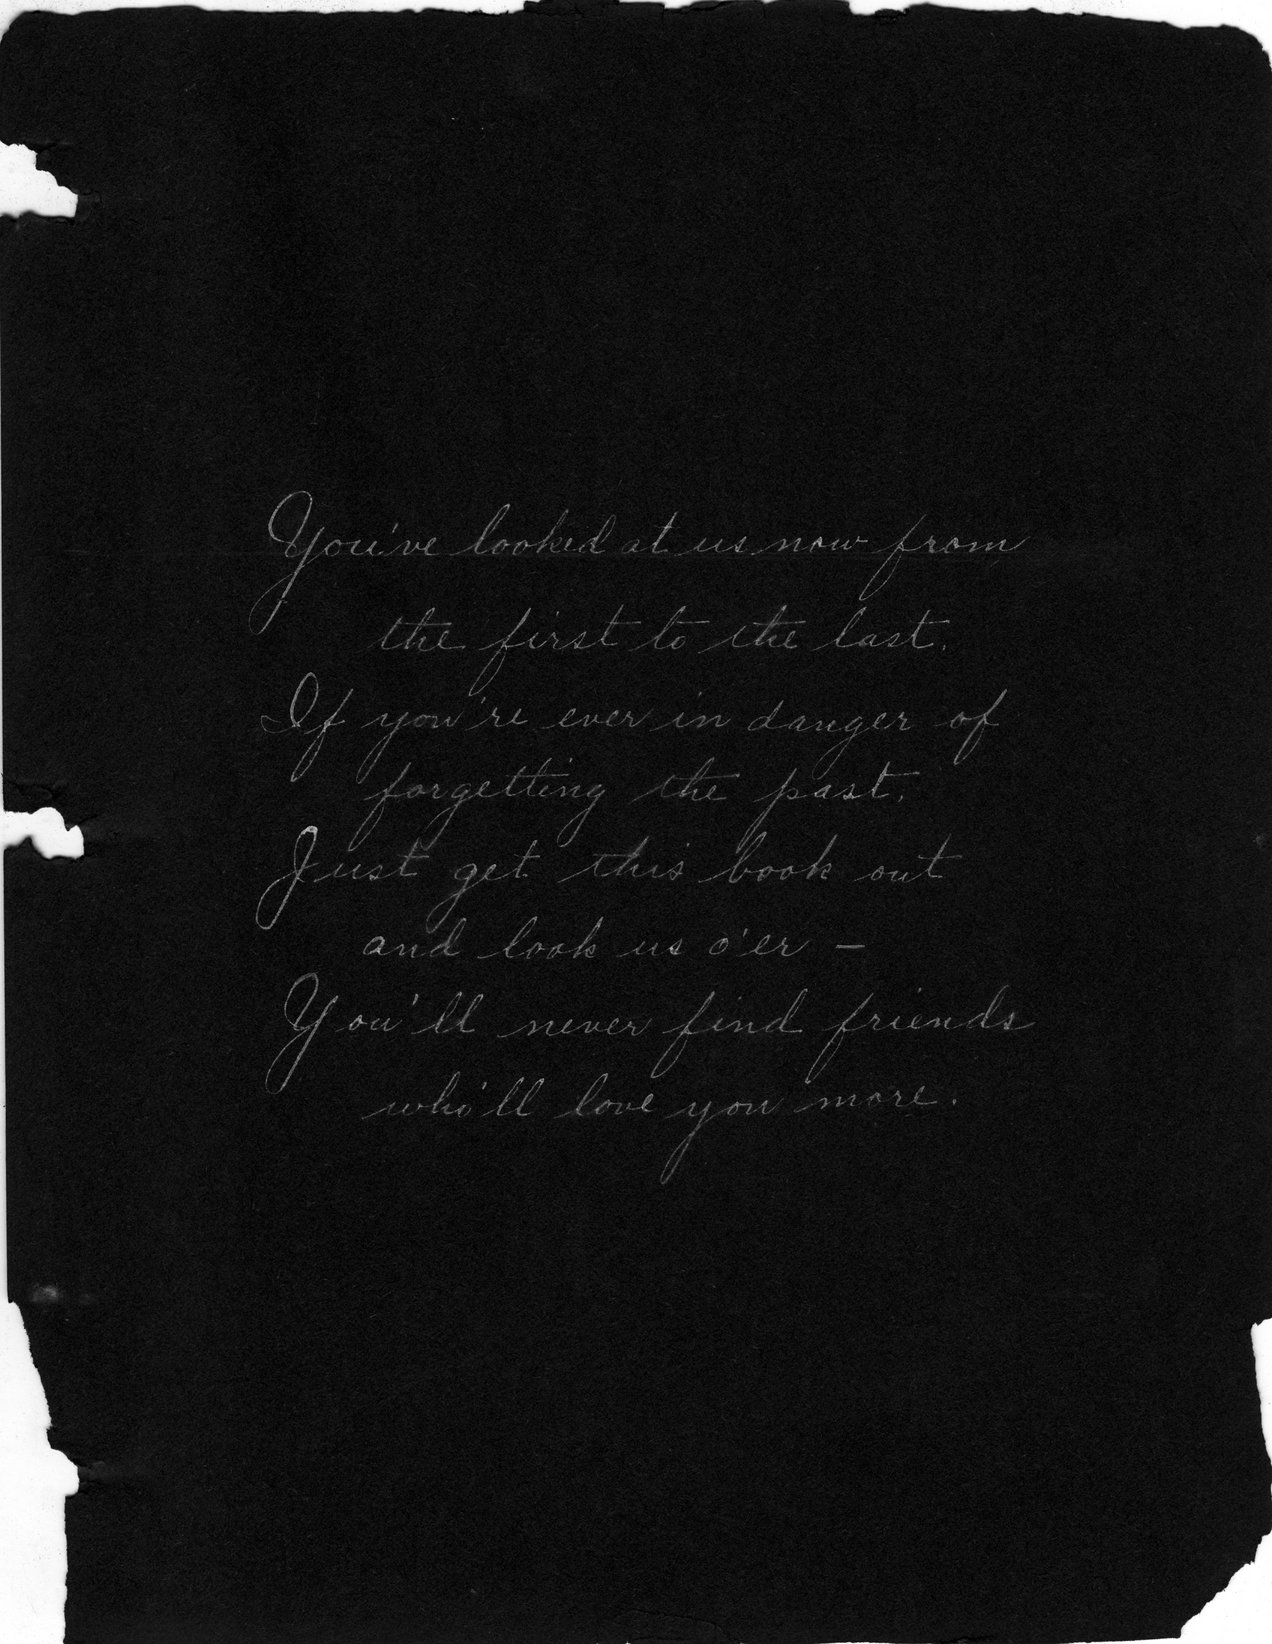 You've looked at us now from
the first to the last.
If you're ever in danger of
forgetting the past,
Just get this book out
and look us o'er –
You'll never find friends
who'll love you more.